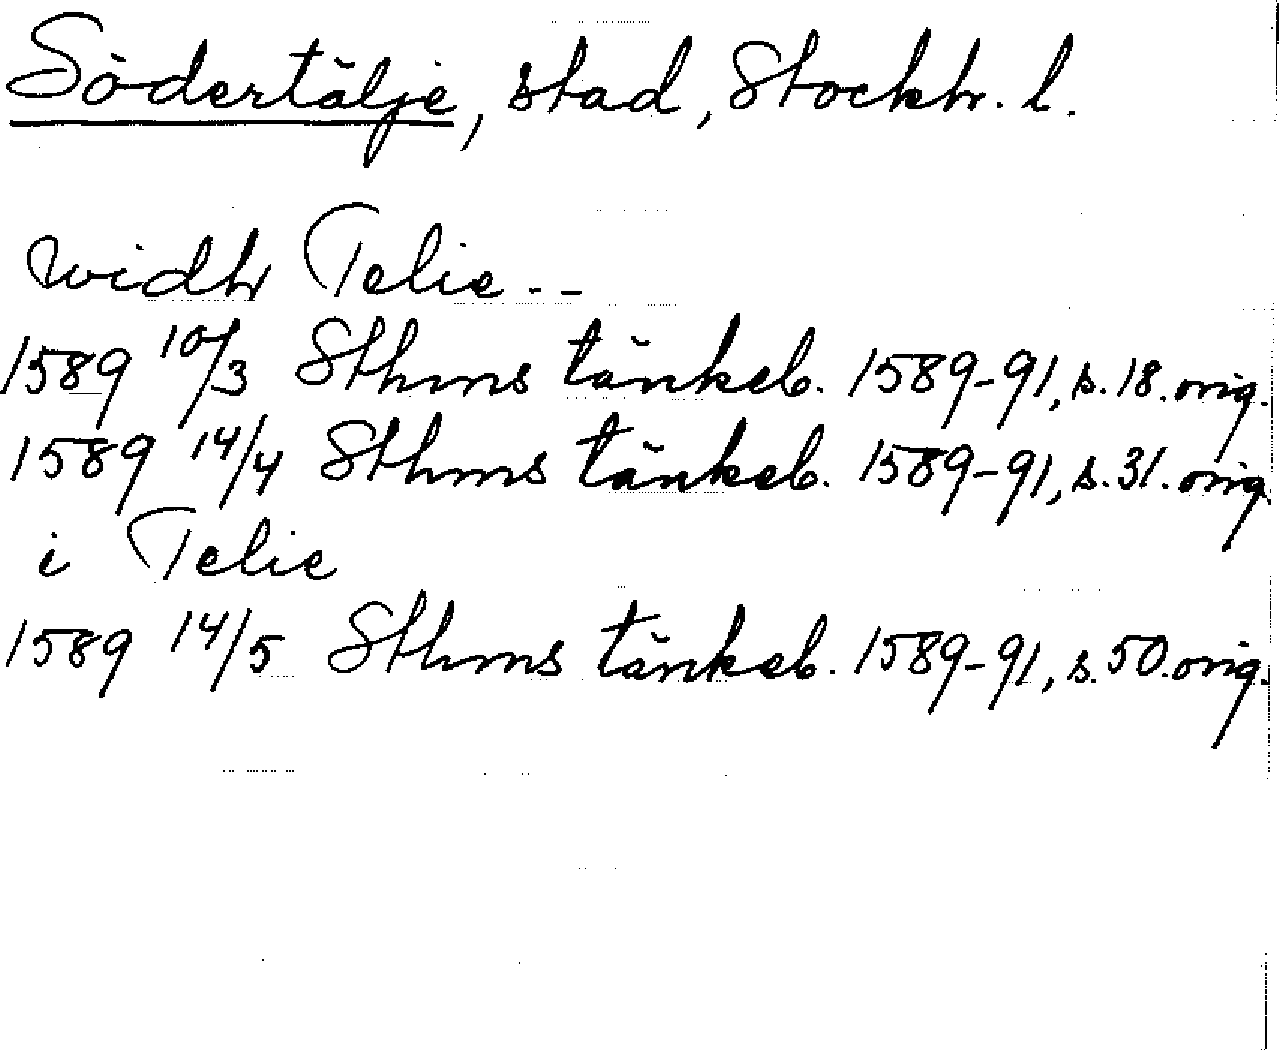 Södertälje, stad, Stockh. l.
widh Telie --
1589 10/3 Sthms tänkeb. 1589-91, s. 18. orig.
1589 14/4 Sthms tänkeb. 1589-91, s. 31. orig.
i Telie
1589 14/5 Sthms tänkeb. 1589-91, s. 50. orig.